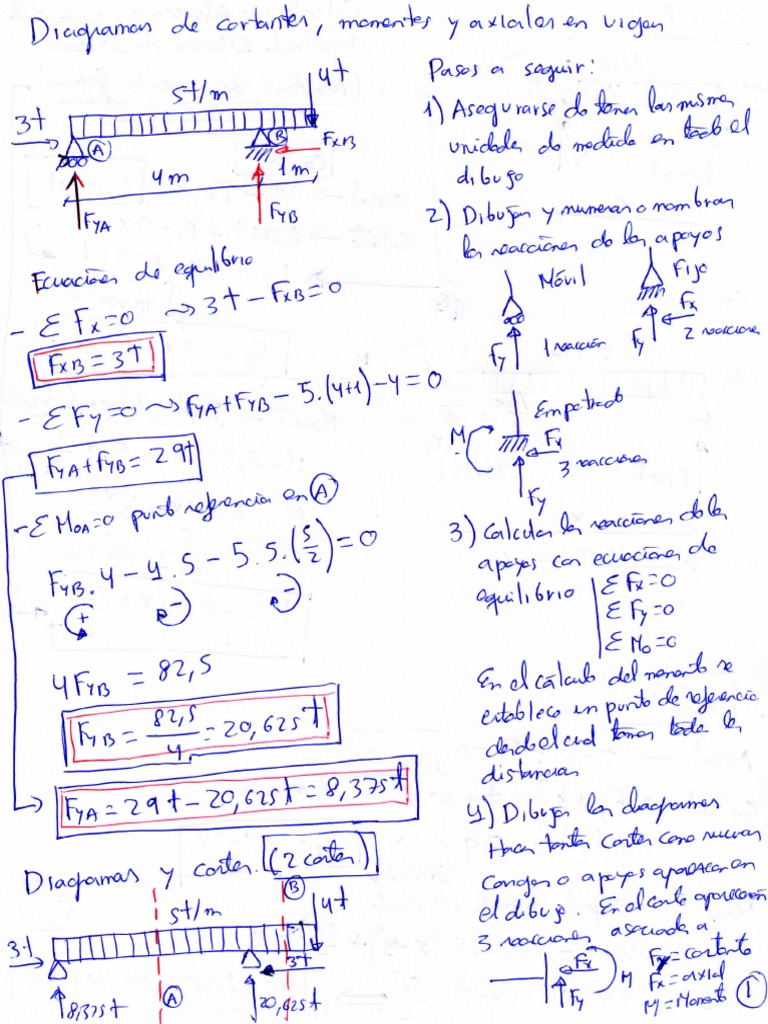 Diagramas de cortantes, momentos y axiales en vigas
4t
5t/m
3t
A
B
FxB
4m
1m
FYA
FYB
Ecuaciones de equilibrio
- ΣFx=0 ⤳ 3t - FxB=0
FxB = 3t
- ΣFy=0 ⤳ FYA+FYB - 5.(4+1) - 4 = 0
FYA+FYB = 29t
- ΣMOA=0 punto referencia en A
FYB.4 - 4.5 - 5.5.(5/2) = 0
+ - -
4FYB = 82,5
FYB = 82,5/4 = 20,625t
FYA = 29t - 20,625t = 8,375t
Diagramas y cortes (2 cortes)
B
5t/m
4t
3t
3t
8,375t
A
20,625t
Pasos a seguir:
1) Asegurarse de tener las misma
unidades de medida en todo el
dibujo
2) Dibujar y numerar o nombrar
las reacciones de los apoyos
Móvil
Fijo
Fy
1 reacción
Fx
Fy
2 reacciones
Empotrado
M
Fx
3 reacciones
Fy
3) Calcular las reacciones de los
apoyos con ecuaciones de
equilibrio
ΣFx=0
ΣFy=0
ΣMo=0
En el cálculo del momento se
establece un punto de referencia
desde el cual tomar todas las
distancias
4) Dibujar los diagramas
Hacer tantos cortes como nuevas
cargas o apoyos aparezcan en
el dibujo. En el corte aparecen
3 reacciones asociadas a:
Fx
M
Fy
Fy = cortante
Fx = axial
M = Momento
1